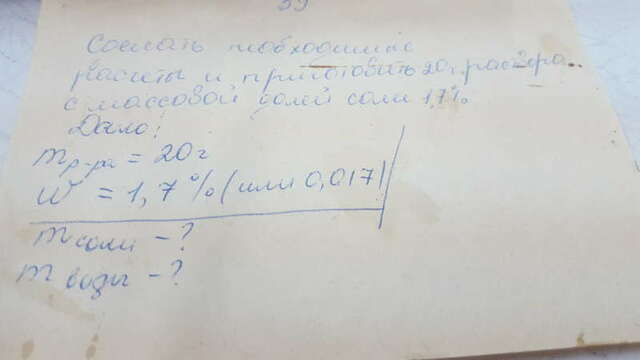 39
Сделать необходимые
расчёты и приготовить 20г раствора
с массовой долей соли 1,7%
Дано:
m р-ра = 20г
W = 1,7% (или 0,017)
m соли - ?
m воды - ?